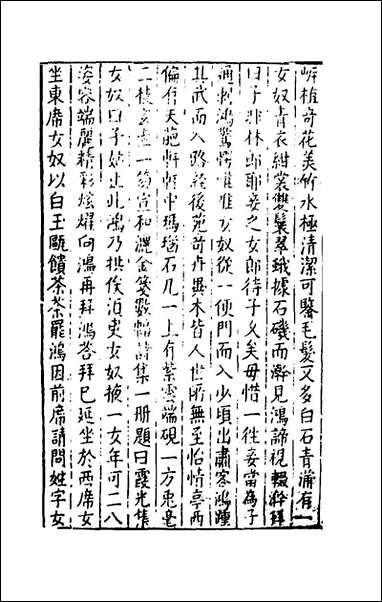 嶼植奇花美竹水極清潔可鑒毛髮又多白石青蒲有一
女奴青衣紺裳雙鬟翠蛾據石磯而澣見鴻諦視輟澣拜
曰子非林郎耶妾之女郎待子久矣毋惜一徃妾當為子
通刺鴻驚愕唯唯女奴從一便門而入少頃出肅客鴻踵
其武而入路經後苑奇卉異木皆人世所無至怡情亭西
偏有天葩軒軒中瑪瑙石几一上有紫雲端硯一方兎毫
二枝玄玉一笏宣和灑金箋數幅詩集一册題曰霞光集
女奴曰子姑止此鴻乃拱俟須臾女奴掖一女年可二八
姿容端麗精彩炫燿向鴻再拜鴻荅拜巳延坐於西席女
坐東席女奴以白玉甌饋茶茶罷鴻因前席請問姓字女